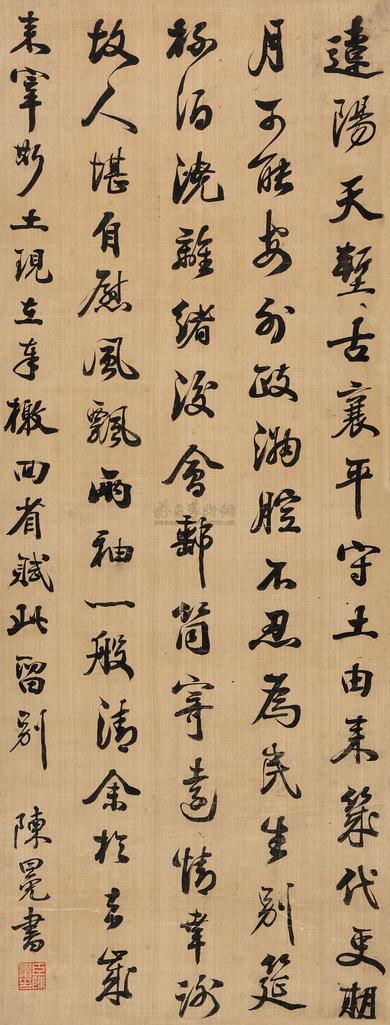 遼陽天塹古襄平守土由来幾代更期
月可能安外政滿腔不忍為民生別筵
杯酒澆離緒後會郵筒寄遠情幸謝
故人堪自慰風飄兩袖一般清余於去歲
来宰斯土現在奉檄回省賦此留別
陳冕書